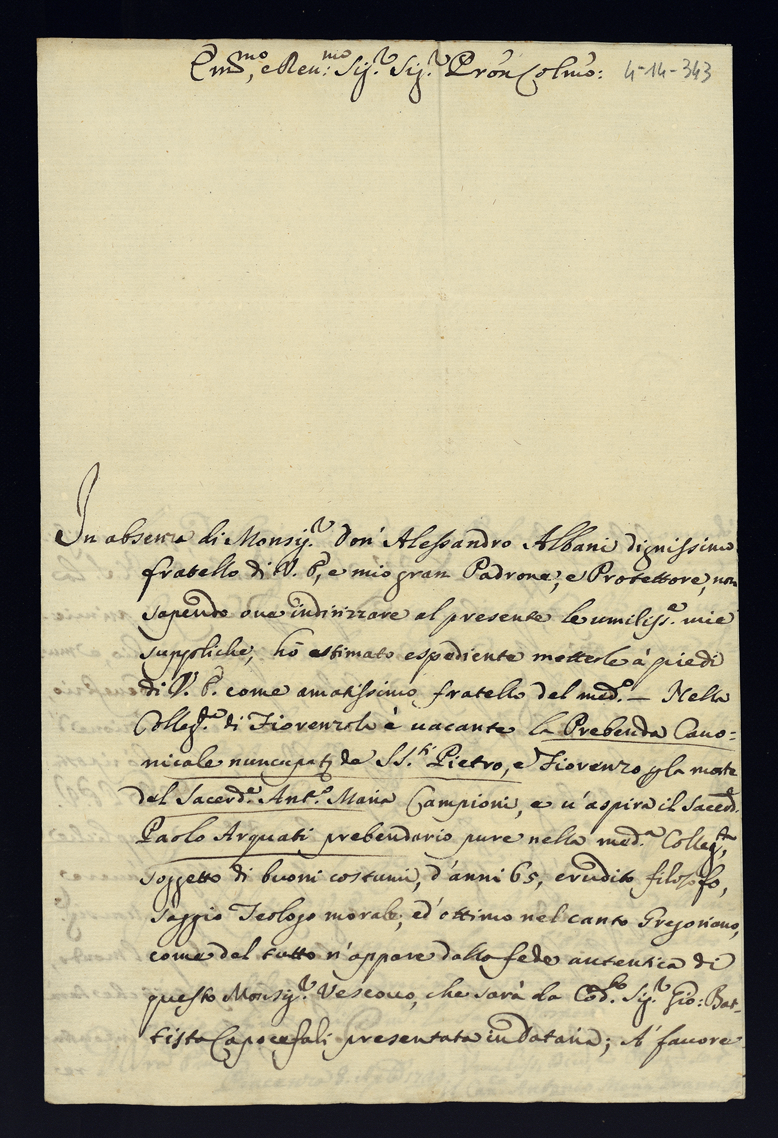 Em.mo, e Reu:mo Sig.r Sig.r Prôn Colmô: 4-14-343
In absenza di Monsig.r Don' Alessandro Albani dignissimo
fratello di V. E, e mio gran Padrone, e Protettore, non
sapendo oue indirizzare al presente le umiliss.e mie
suppliche, hò estimato espediente metterle à piedi
di V. E. come amatissimo fratello del med.o — Nella
Colleg.ta di Fiorenzola è uacante la Prebenda Cano-
nicale nuncupat da SS.ti Pietro, e Fiorenzo p la morte
del Sacerd.e Ant.o Maria Campioni, e u'aspira il Sacerd.e
Paolo Arquati prebendario pure nella med.a Colleg.ta,
soggetto di buoni costumi, d'anni 65, erudito filosofo,
saggio Teologo morale, ed'ottimo nel canto Gregoriano,
come del tutto n'appare dalla fede autentica di
questo Monsig.r Vescouo, che sarà da Sig.r Gio: Bat-
tista Capocefali presentata in dataria; A' fauore